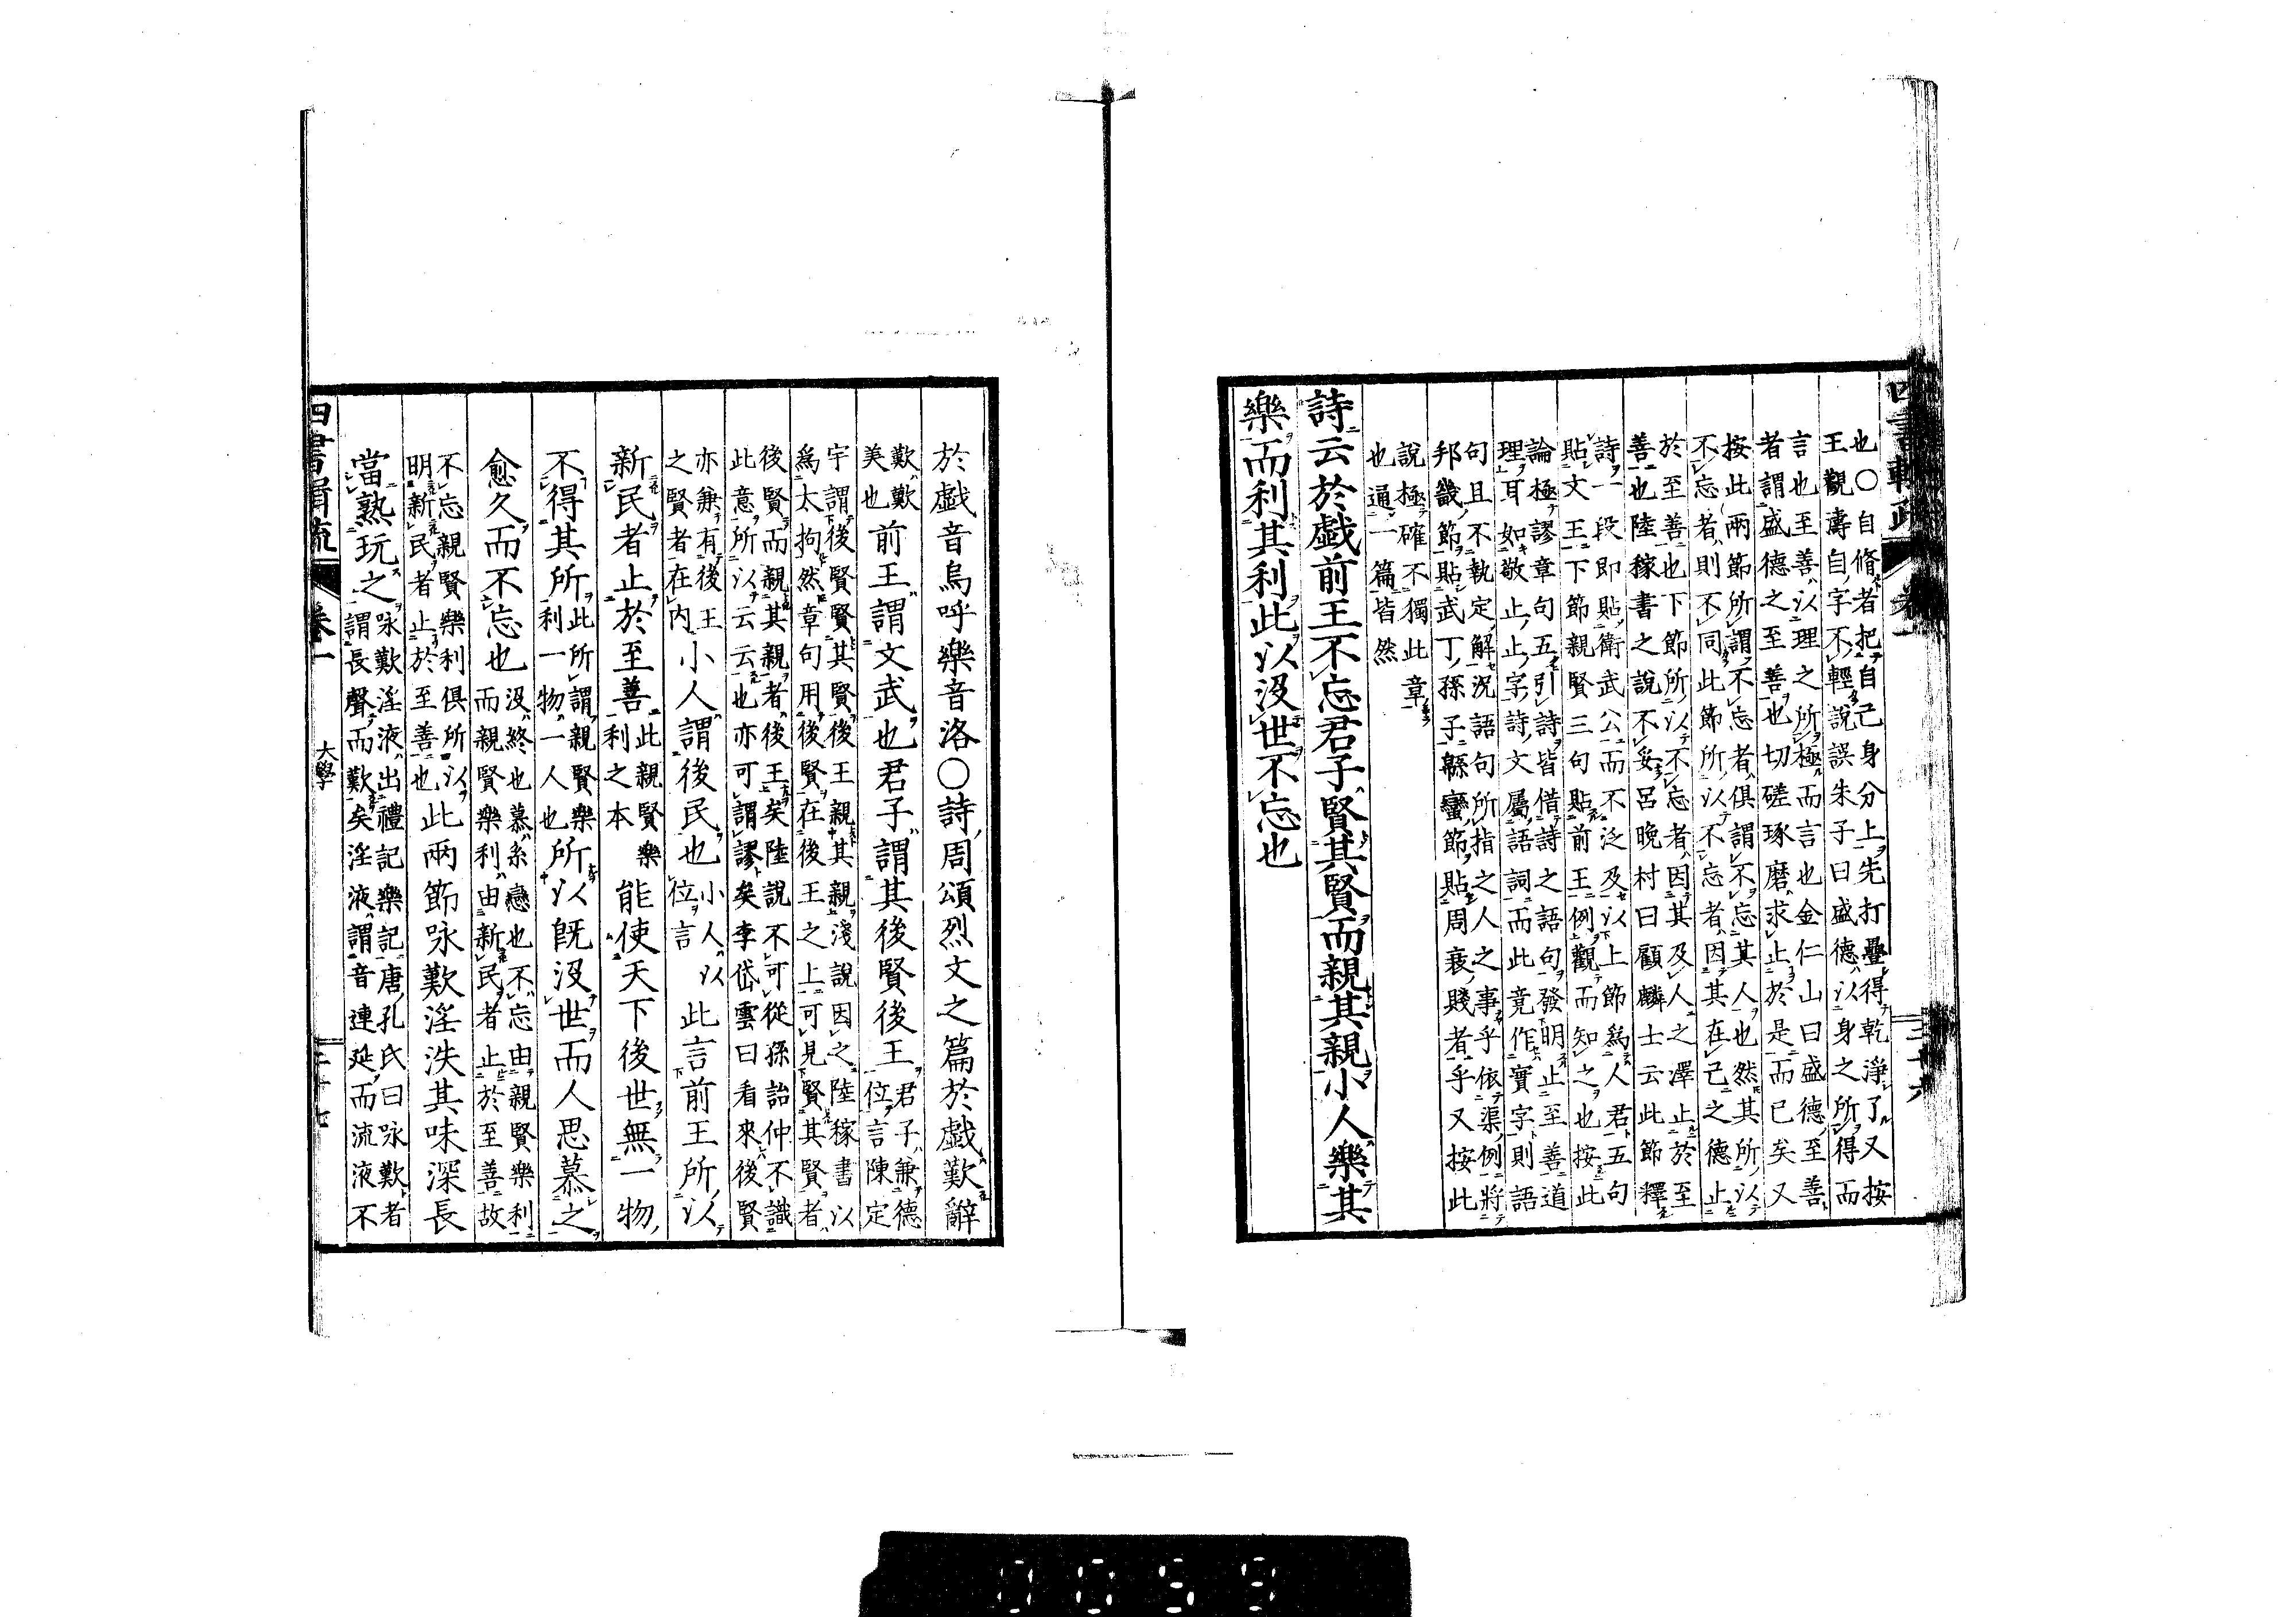 也○自脩者把自己身分上先打疊得乾淨了又按
王觀濤自字不輕說誤朱子曰盛德以身之所得而
言也至善以理之所極而言也金仁山曰盛德至善
者謂盛德之至善也切磋琢磨求止於是而已矣又
按此兩節所謂不忘者俱謂不忘其人也然其所以
不忘者則不同此節所以不忘者因其在己之德止
於至善也下節所以不忘者因其及人之澤止於至
善也陸稼書之說不妥呂晚村曰顧麟士云此節釋
詩一段即貼衛武公而不泛及以上節為人君五句
貼文王下節親賢三句貼前王例觀而知之也按此
論極謬章句五引詩皆借詩之語句發明止至善道
理耳如敬止止字詩文屬語詞而此竟作實字則語
句且不執定解況語句所指之人之事乎依渠例將
邦畿節貼武丁孫子緜蠻節貼周衰賤者乎又按此
說極確不獨此章
也通一篇皆然
詩云於戲前王不忘君子賢其賢而親其親小人樂其
樂而利其利此以沒世不忘也
四書輯疏
卷一
三十六
於戲音烏呼樂音洛○詩周頌烈文之篇於戲歎辭
歎歎
美也
前王謂文武也君子謂其後賢後王
君子兼德
位言陳定
宇謂後賢賢其賢後王親其親淺說因之陸稼書以
為太拘然章句用後賢在後王之上可見賢其賢者
後賢而親其親者後王矣陸說不可從孫詒仲不識
此意所以云云也亦可謂謬矣李岱雲曰看來後賢
亦兼有後王
之賢者在內
小人謂後民也
小人以
位言
此言前王所以
新民者止於至善
此親賢樂
利之本
能使天下後世無一物
不得其所
此所謂親賢樂
利一物一人也
所以既沒世而人思慕之
愈久而不忘也
沒終也慕係戀也不忘由親賢樂利
而親賢樂利由新民者止於至善故
不忘親賢樂利俱所以
明新民者止於至善也
此兩節咏歎淫泆其味深長
當熟玩之
咏歎淫液出禮記樂記唐孔氏曰咏歎者
謂長聲而歎矣淫液謂音連延而流液不
四書輯疏
卷一
大學
三十七